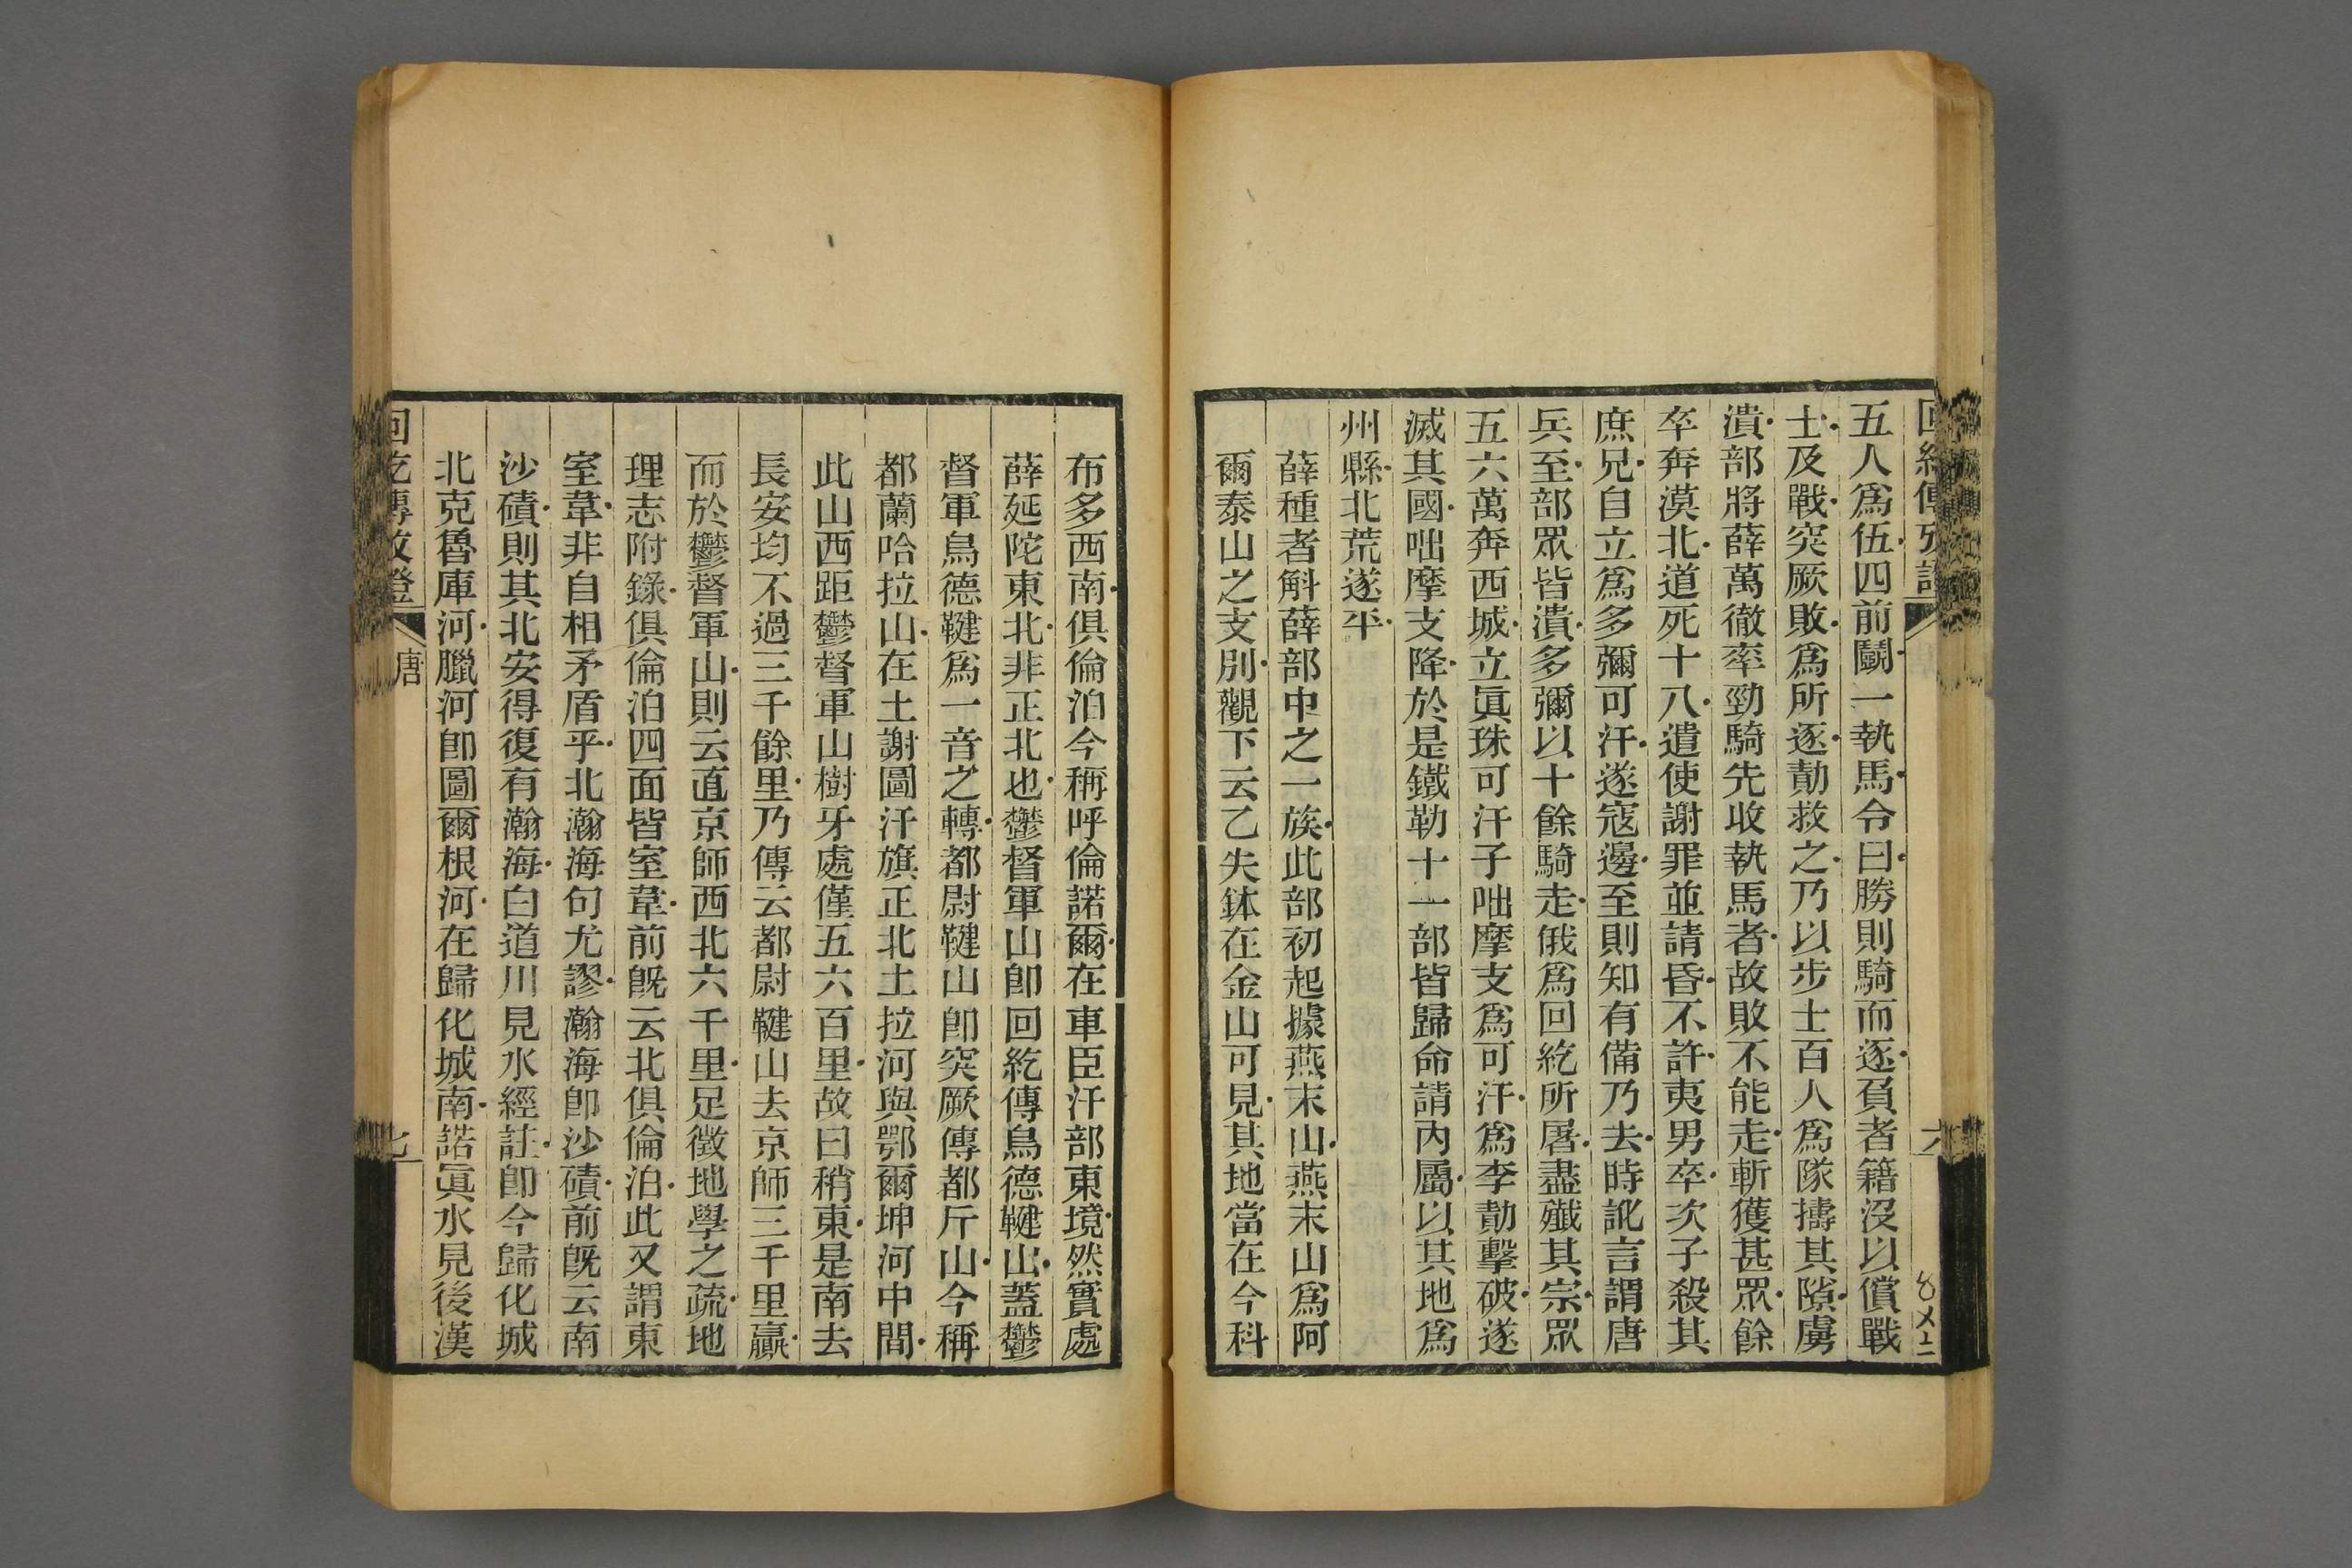 五人爲伍四前鬭一執馬令曰勝則騎而逐負者籍沒以償戰
士及戰突厥敗爲所逐勣救之乃以步士百人爲隊擣其隙虜
潰部將薛萬徹率勁騎先收執馬者故敗不能走斬獲甚眾餘
卒奔漠北道死十八遣使謝罪並請昏不許夷男卒次子殺其
庶兄自立爲多彌可汗遂寇邊至則知有備乃去時訛言謂唐
兵至部眾皆潰多彌以十餘騎走俄爲回紇所屠盡殲其宗眾
五六萬奔西城立眞珠可汗子咄摩支爲可汗爲李勣擊破遂
滅其國咄摩支降於是鐵勒十一部皆歸命請內屬以其地爲
州縣北荒遂平
薛種者斛薛部中之一族此部初起據燕末山燕末山爲阿
爾泰山之支別觀下云乙失鉢在金山可見其地當在今科
布多西南俱倫泊今稱呼倫諾爾在車臣汗部東境然實處
薛延陀東北非正北也鬱督軍山卽回紇傳烏德鞬山蓋鬱
督軍烏德鞬爲一音之轉都尉鞬山卽突厥傳都斤山今稱
都蘭哈拉山在土謝圖汗旗正北土拉河與鄂爾坤河中間
此山西距鬱督軍山樹牙處僅五六百里故曰稍東是南去
長安均不過三千餘里乃傳云都尉鞬山去京師三千里贏
而於鬱督軍山則云直京師西北六千里足徵地學之疏地
理志附錄俱倫泊四面皆室韋前旣云北俱倫泊此又謂東
室韋非自相矛盾乎北瀚海句尤謬瀚海卽沙磧前旣云南
沙磧則其北安得復有瀚海白道川見水經註卽今歸化城
北克魯庫河臘河卽圖爾根河在歸化城南諾眞水見後漢
唐
七